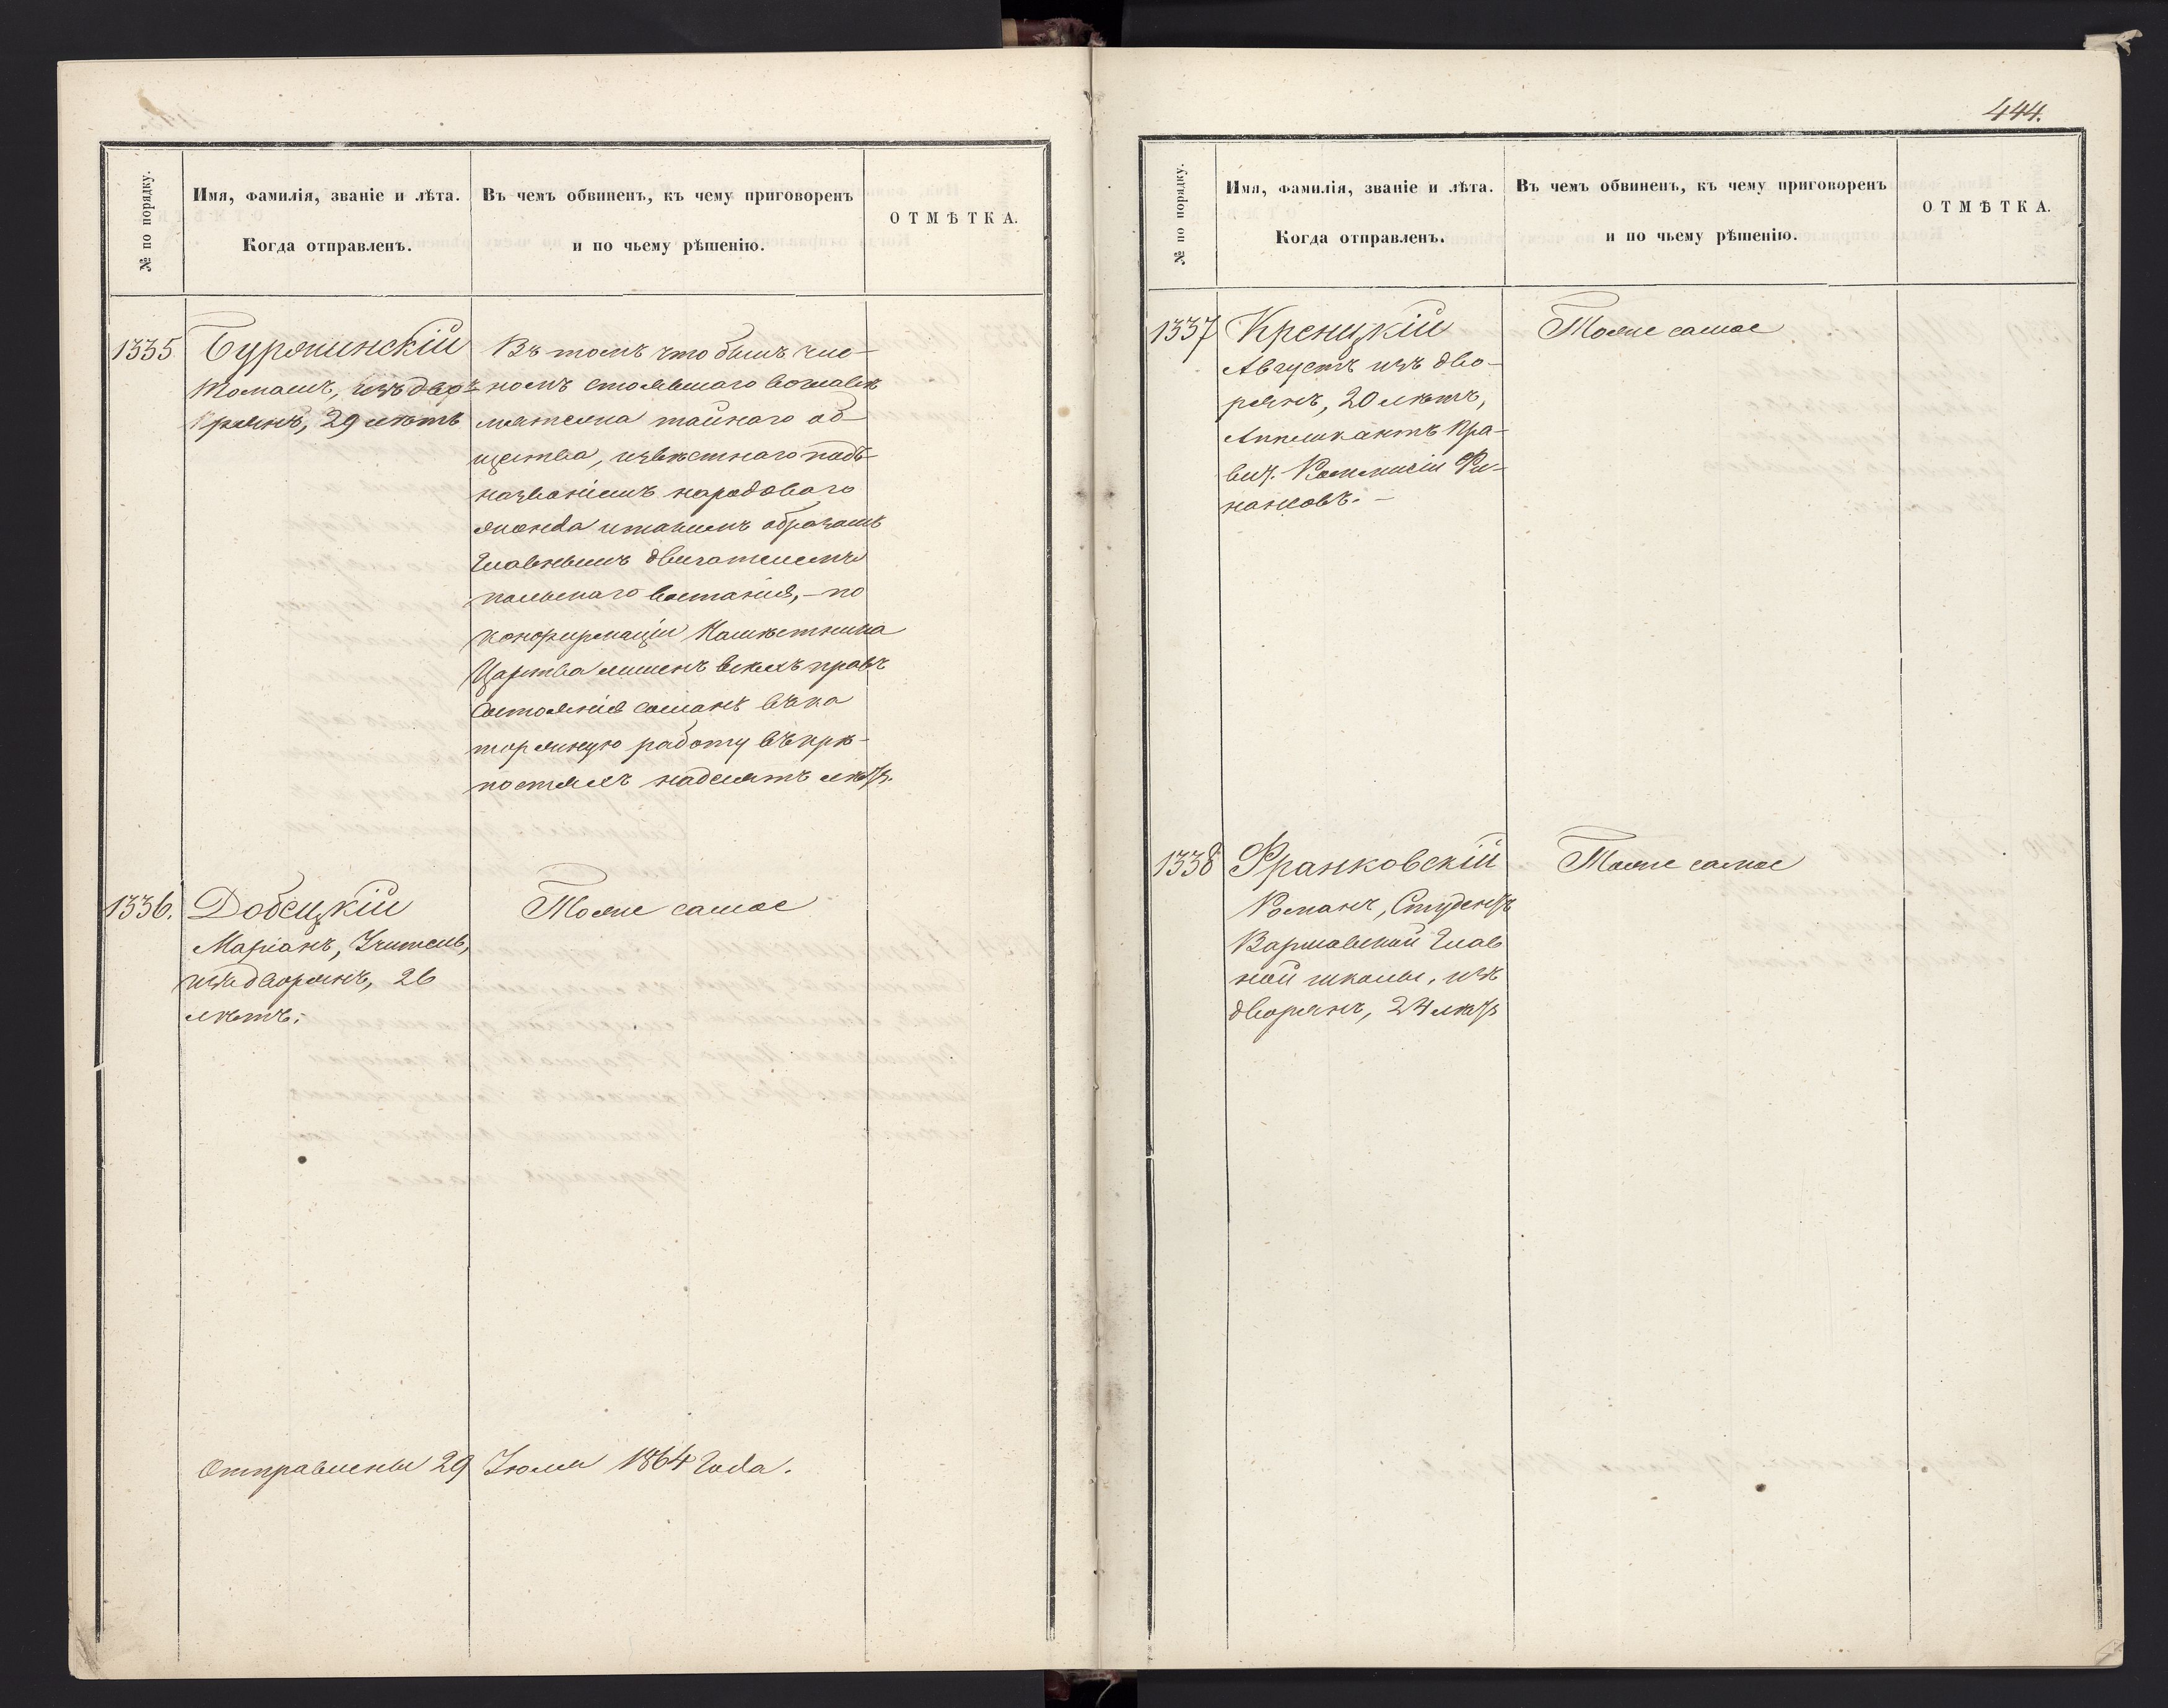 № по порядку.
Имя, фамилія, званіе и лѣта.
Когда отправленъ.
Въ чемъ обвиненъ, къ чему приговоренъ
и по чьему рѣшенію.
ОТМѢТКА.
1335
Буржинскій
Томашъ, изъ дво-
рянъ, 29 лѣтъ
Въ томъ что былъ чле-
номъ стоявшаго воглавѣ
мятежа тайнаго об-
щества, извѣстнаго подъ
названіемъ народоваго
жонда итакимъ образомъ
главнымъ двигателемъ
польскаго востанія, – по
конфирмаціи Намѣстника
Царства лишенъ всѣхъ правъ
состоянія сосланъ въка
торжную работу въкрѣ-
постяхъ надесять лѣтъ.
1336.
Добецкій
Маріанъ, Учитель,
изъ дворянъ, 26
лѣтъ.
Тоже самое
Отправлены 29 Іюля 1864 года.
444.
№ по порядку.
Имя, фамилія, званіе и лѣта.
Когда отправленъ.
Въ чемъ обвиненъ, къ чему приговоренъ
и по чьему рѣшенію.
ОТМѢТКА.
1337
Креницкій
Августъ изъ дво-
рянъ, 20 лѣтъ,
Аппликантъ Пра-
вит. Коммисіи Фи-
нансовъ. –
Тоже самое
1338
Франковскій
Романъ, Студентъ
Варшавской Глав
ной школы, изъ
дворянъ, 24 лѣтъ
Тоже самое